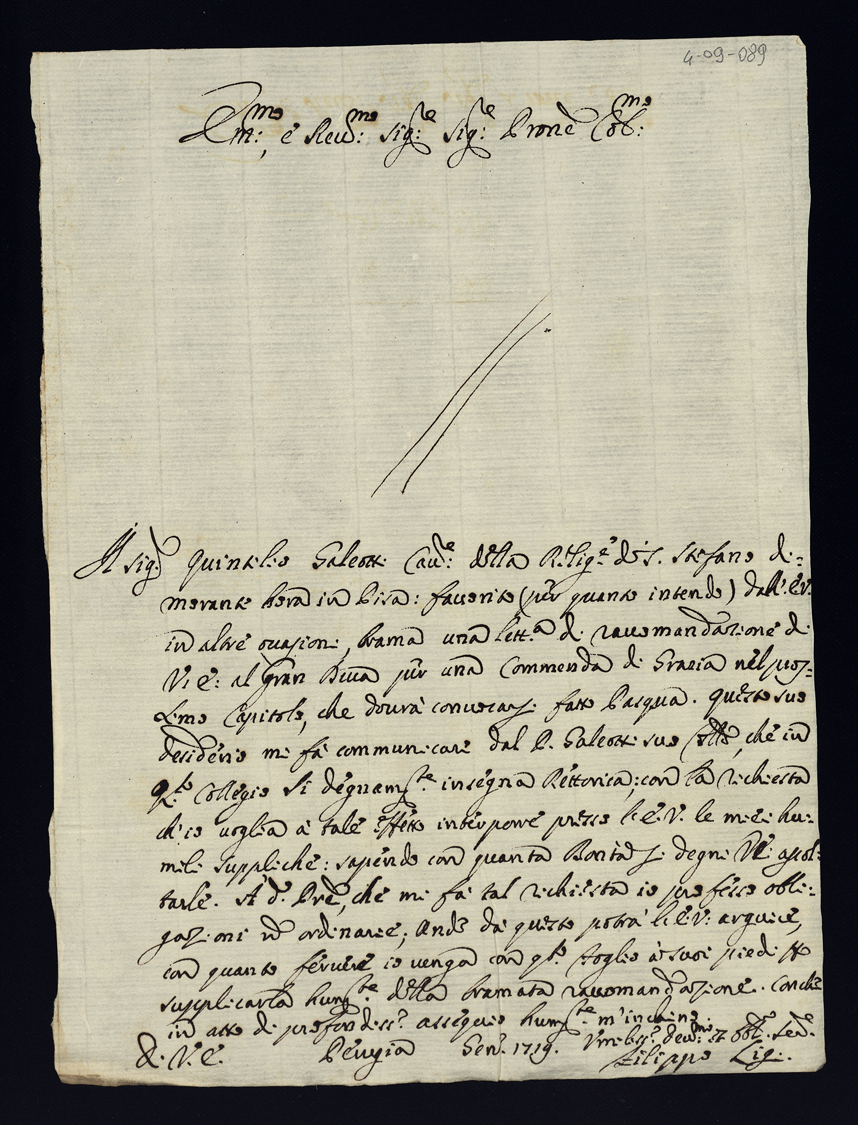 4-09-089
Em:mo, e Reud:mo Sig:re Sig:re Prone Col:mo
Il Sig:r Quintilio Galeotti Cau:re della Relig:e di S. Stefano di-
morante hora in Pisa: fauorito (per quanto intendo) dall'E.V.
in altre occasioni, brama una lett:a di raccomandazione di
V.E: al Gran Duca per una Commenda di Grazia nel pros-
simo Capitolo, che dourà conuocarsi fatto Pasqua. Questo suo
desiderio mi fà communicare dal P. Galeotti suo frãtello, che in
q:to Collegio sì degnam:te insegna Rettorica; con la richiesta
ch'io uoglia à tale effetto interporre presso l'E.V. le mie hu-
mili suppliche: sapendo con quanta Bontà si degni VE ascol-
tarle. Al d:o Pre, che mi fà tal richiesta io professo obli-
gazioni nõ ordinarie; onde da questo potrà l'E.V: arguire,
con quanto feruore io uenga con q:to foglio à suoi piedi p
supplicarla hum:te della bramata raccomandazione. Con che
in atto di profondiss:o ossequio hum:te m'inchino.
D. V. E. Perugia Gen: 1719. Vmiliss:o deu:mo et obl: Ser:
Filippo